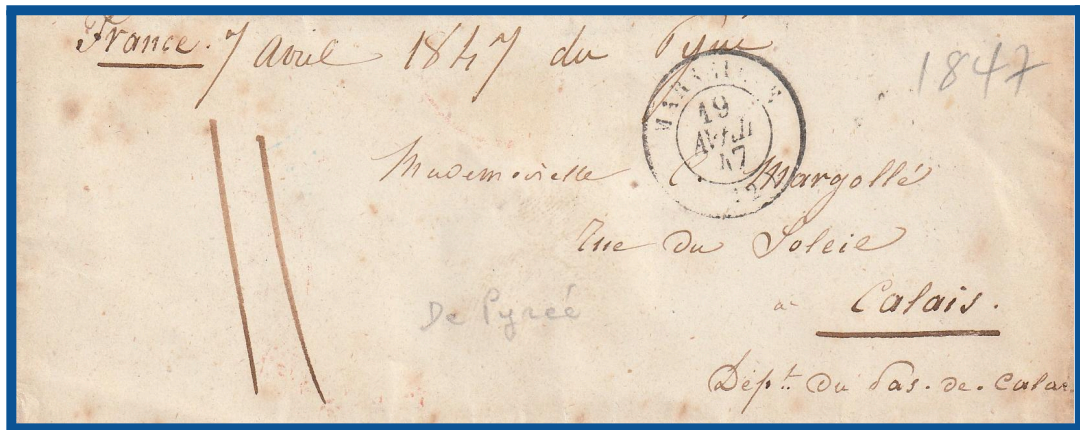 France. 7 Avril 1847 du Pyrée
1847
MARSEILLE
19
AVRIL
47
Mademoiselle C Margollé
Rue du Soleil
à Calais.
De Pyreé
Dépt. du Pas-de-Calais